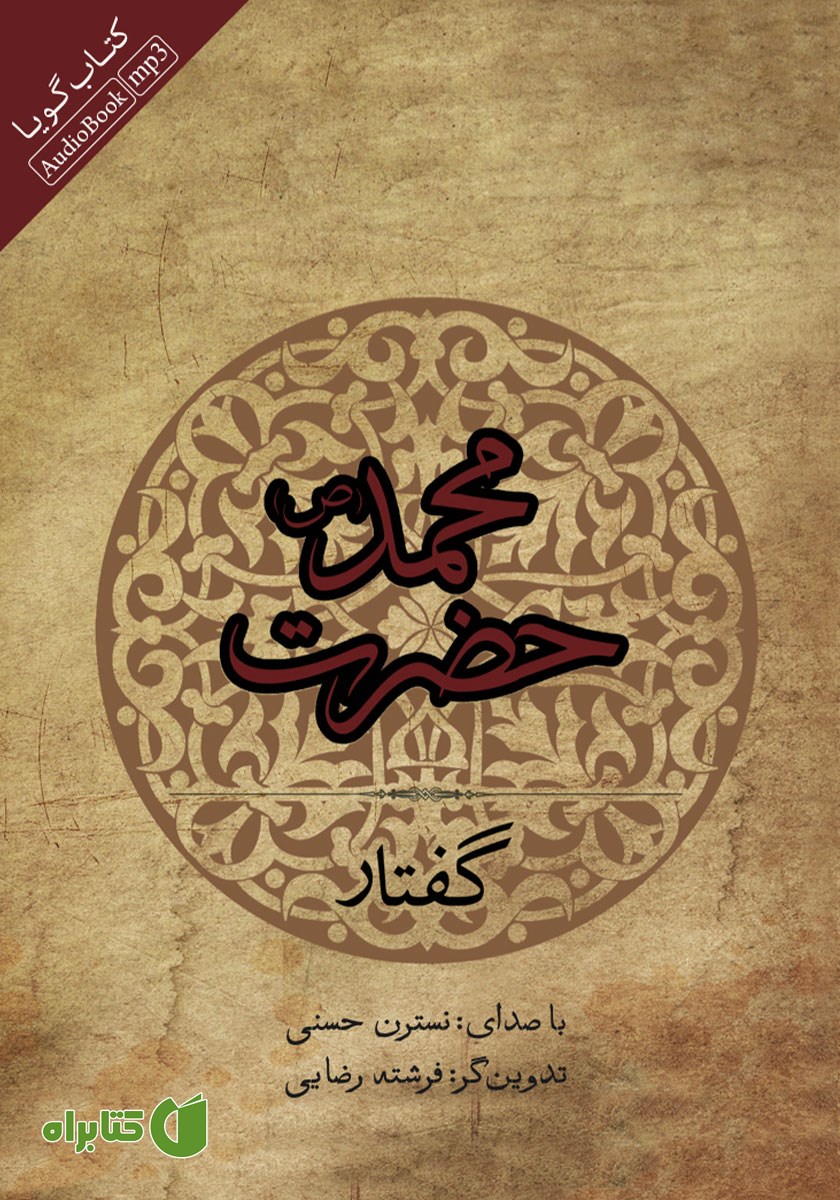 کتاب گویا
AudioBook mp3
محمد (ص)
حضرت
گفتار
با صدای: نسترن حسنی
تدوین‌گر: فرشته رضایی
کتابراه